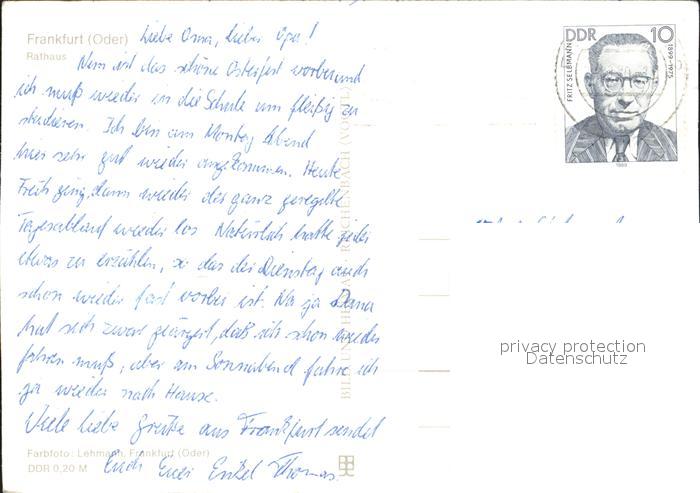 Frankfurt (Oder)
Rathaus
Liebe Oma, lieber Opa!
Nun ist das schöne Osterfest vorbei und
ich muß wieder in die Schule um fleißig zu
studieren. Ich bin am Montag Abend
hier sehr gut wieder angekommen. Heute
Früh ging dann wieder der ganz geregelte
Tagesablauf wieder los. Natürlich hatte jeder
etwas zu erzählen, so das der Dienstag auch
schon wieder fast vorbei ist. Na ja Dana
hat sich zwar geärgert, daß ich schon wieder
fahren muß, aber am Sonnabend fahre ich
ja wieder nach Hause.
Viele liebe Grüße aus Frankfurt sendet
Euch Euer Enkel Thomas.
Farbfoto: Lehmann, Frankfurt (Oder)
DDR 0,20 M
BILD UND HEIMAT REICHENBACH (VOGTL)
DDR 10
FRITZ SELBMANN 1899-1975
1989
privacy protection
Datenschutz